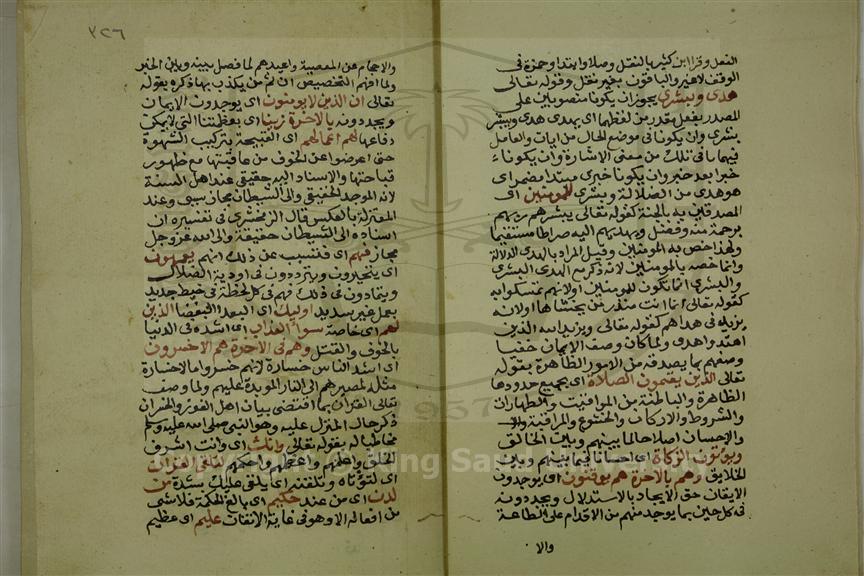 الفعل وقرا ابن كثير بالنقل وصلا وابتدا وحمزة فى
الوقف لاغير والباقون بغير نقل وقوله تعالى
هدى وبشرى يجوز ان يكونا منصوبين على
المصدر بفعل مقدر من لفظهما اى يهدى هدى ويبشر
بشرى وان يكونا فى موضع الحال من ايات والعامل
فيها ما فى تلك من معنى الاشارة وان يكونا
خبرا بعد خبر وان يكونا خبرى مبتدا مضمر اى
هو هدى من الضلالة وبشرى للمومنين اى
المصدقين به بالجنة كقوله تعالى يبشرهم ربهم
برحمة منه وفضل ويهديهم اليه صراطا مستقيما
ولهذا خص به المومنين وقيل المراد بالهدى الدلالة
وانما خصه بالمومنين لانه ذكر مع الهدى البشرى
والبشرى انما تكون للمومنين اولانهم تمسكوا به
كقوله تعالى انما انت منذر من يخشاها اولانه
يزيد فى هداهم كقوله تعالى ويزيد الله الذين
اهتدوا هدى ولما كان وصف الايمان خفيا
وصفهم بما يصدقه من الامور الظاهرة بقوله
تعالى الذين يقيمون الصلاة اى بجميع حدودها
الظاهرة والباطنة من المواقيت والطهارات
والشروط والاركان والخشوع والمراقبة
والاحسان اصلاحا لما بينهم وبين الخالق
ويوتون الزكاة اى احسانا فيما بينهم وبين
الخلايق وهم بالاخرة هم يوقنون اى يوجدون
الايقان حق الايجاد بالاستدلال ويجددونه
فى كل حين بما يوجد منهم من الاقدام على الطاعة
والا
٣٢٦
والاحجام عن المعصية واعيدهم لما فصل بينه وبين الخبر
ولما افهم التخصيص ان ثم من يكذب بها ذكره بقوله
تعالى ان الذين لايومنون اى يوجدون الايمان
ويجددونه بالاخرة زينا اى بعظمتنا التى لايمكن
دفاعها لهم اعمالهم اى القبيحة بتركيب الشهوة
حتى اعرضوا عن الخوف من عاقبتها مع ظهور
قباحتها والاسناد اليه حقيقى عند اهل السنة
لانه الموجد الحقيقى والى الشيطان مجاز سببى وعند
المعتزلة بالعكس قال الزمخشرى فى تفسيره ان
اسناده الى الشيطان حقيقة والى الله عز وجل
مجاز فهم اى فتسبب عن ذلك انهم يعمهون
اى يتحيرون ويترددون فى اودية الضلال
ويتمادون فى ذلك فهم فى كل لحظة فى خبط جديد
بعمل غير سديد اوليك اى البعدا البغضا الذين
لهم اى خاصة سوا العذاب اى اشده فى الدنيا
بالخوف والقتل وهم فى الاخرة هم الاخسرون
اى اشد الناس خسارة لانهم خسروا مالاخسارة
مثله لمصيرهم الى النار الموبدة عليهم ولما وصف
تعالى القران بما اقتضى بيان اهل الفوز والخسران
ذكر حال المنزل عليه وهو النبى صلى الله عليه وسلم
مخاطبا له بقوله تعالى وانك اى وانت اشرف
الخلق واعلمهم واعظمهم واحكمهم لتلقى القران
اى لتوتاه وتلقنه اى يلقى عليك بشدة من
لدن اى من عند حكيم اى بالغ الحكمة فلا شى
من افعاله الا وهو فى غاية الاتقان عليم اى عظيم
1957
King Saud